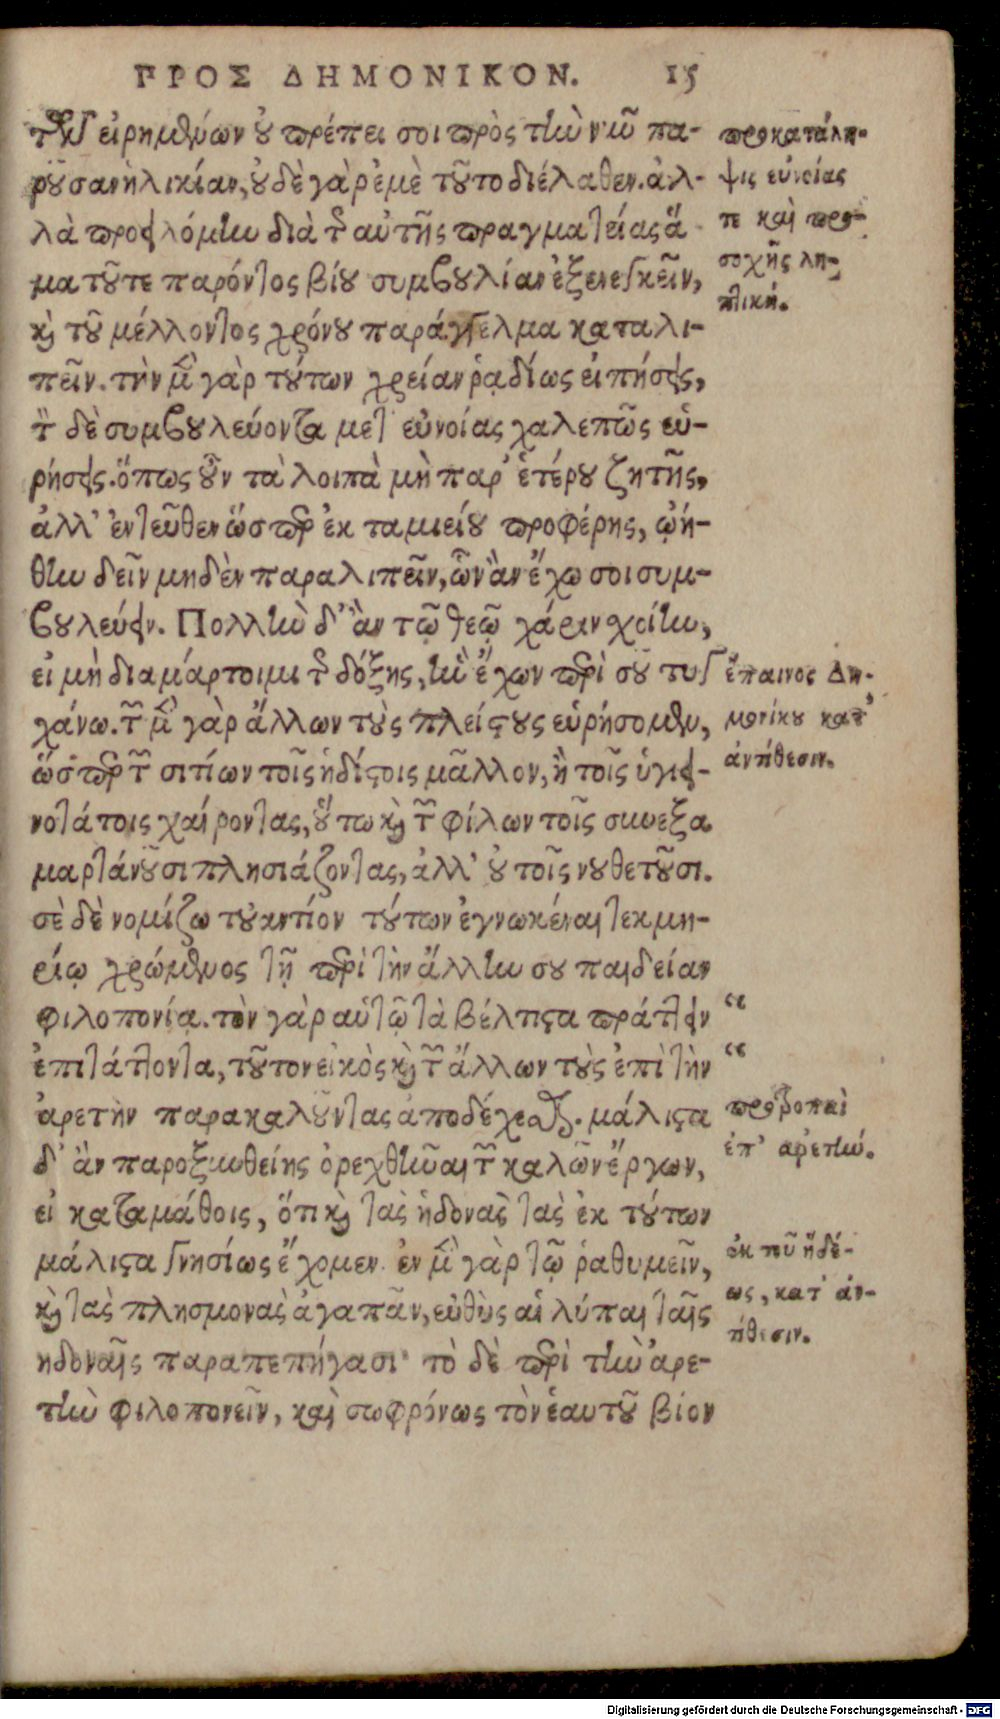 ΠΡΟΣ ΔΗΜΟΝΙΚΟΝ. 15
τῶν εἰρημένων οὐ πρέπει σοι πρὸς τὴν νῦν πα-
ροῦσαν ἡλικίαν, οὐδὲ γὰρ ἐμὲ τοῦτο διέλαθεν. ἀλ-
λὰ προειλόμην διὰ τῆς αὐτῆς πραγματείας ἅ-
μα τοῦ τε παρόντος βίου συμβουλίαν ἐξενεγκεῖν,
καὶ τοῦ μέλλοντος χρόνου παράγγελμα καταλι-
πεῖν. τὴν μὲν γὰρ τούτων χρείαν ῥᾳδίως εἰπήσεις,
τὸν δὲ συμβουλεύοντα μετ εὐνοίας χαλεπῶς εὑ-
ρήσεις. ὅπως οὖν τὰ λοιπὰ μὴ παρ' ἑτέρου ζητῇς,
ἀλλ' ἐντεῦθεν ὥσπερ ἐκ ταμιείου προφέρῃς, ᾠή-
θην δεῖν μηδὲν παραλιπεῖν, ὧν ἂν ἔχω σοι συμ-
βουλεύειν. Πολλὴν δ' ἂν τῷ θεῷ χάριν σχοίην,
εἰ μὴ διαμάρτοιμι τῆς δόξης, ἣν ἔχων περὶ σοῦ τυγ
χάνω. τῶν μὲν γὰρ ἄλλων τοὺς πλείστους εὑρήσομεν,
ὥσπερ τῶν σιτίων τοῖς ἡδίστοις μᾶλλον, ἢ τοῖς ὑγιει-
νοτάτοις χαίροντας, οὕτω καὶ τῶν φίλων τοῖς συνεξα
μαρτάνουσι πλησιάζοντας, ἀλλ' οὐ τοῖς νουθετοῦσι.
σὲ δὲ νομίζω τοὐναντίον τούτων ἐγνωκέναι τεκμη-
ρίῳ χρώμενος τῇ περὶ τὴν ἄλλην σου παιδείαν
φιλοπονίᾳ. τὸν γὰρ αὑτῷ τὰ βέλτιστα πράττειν
ἐπιτάττοντα, τοῦτον εἰκὸς καὶ τῶν ἄλλων τοὺς ἐπὶ τὴν
ἀρετὴν παρακαλοῦντας ἀποδέχεσθαι. μάλιστα
δ' ἂν παροξυνθείης ὀρεχθῆναι τῶν καλῶν ἔργων,
εἰ καταμάθοις, ὅτι καὶ τὰς ἡδονὰς τὰς ἐκ τούτων
μάλιστα γνησίως ἔχομεν. ἐν μὲν γὰρ τῷ ῥαθυμεῖν,
καὶ τὰς πλησμονὰς ἀγαπᾶν, εὐθὺς αἱ λύπαι ταῖς
ἡδοναῖς παραπεπήγασι· τὸ δὲ περὶ τὴν ἀρε-
τὴν φιλοπονεῖν, καὶ σωφρόνως τὸν ἑαυτοῦ βίον
προκατάλη-
ψις εὐνοίας
τε καὶ προ-
σοχῆς λη-
πτική.
ἔπαινος Δη-
μονίκου κατ'
ἀντίθεσιν.
“
“
προτροπαὶ
ἐπ' ἀρετήν.
ἐκ τοῦ ἡδέ-
ως, κατ' ἀν-
τίθεσιν.
Digitalisierung gefördert durch die Deutsche Forschungsgemeinschaft - DFG